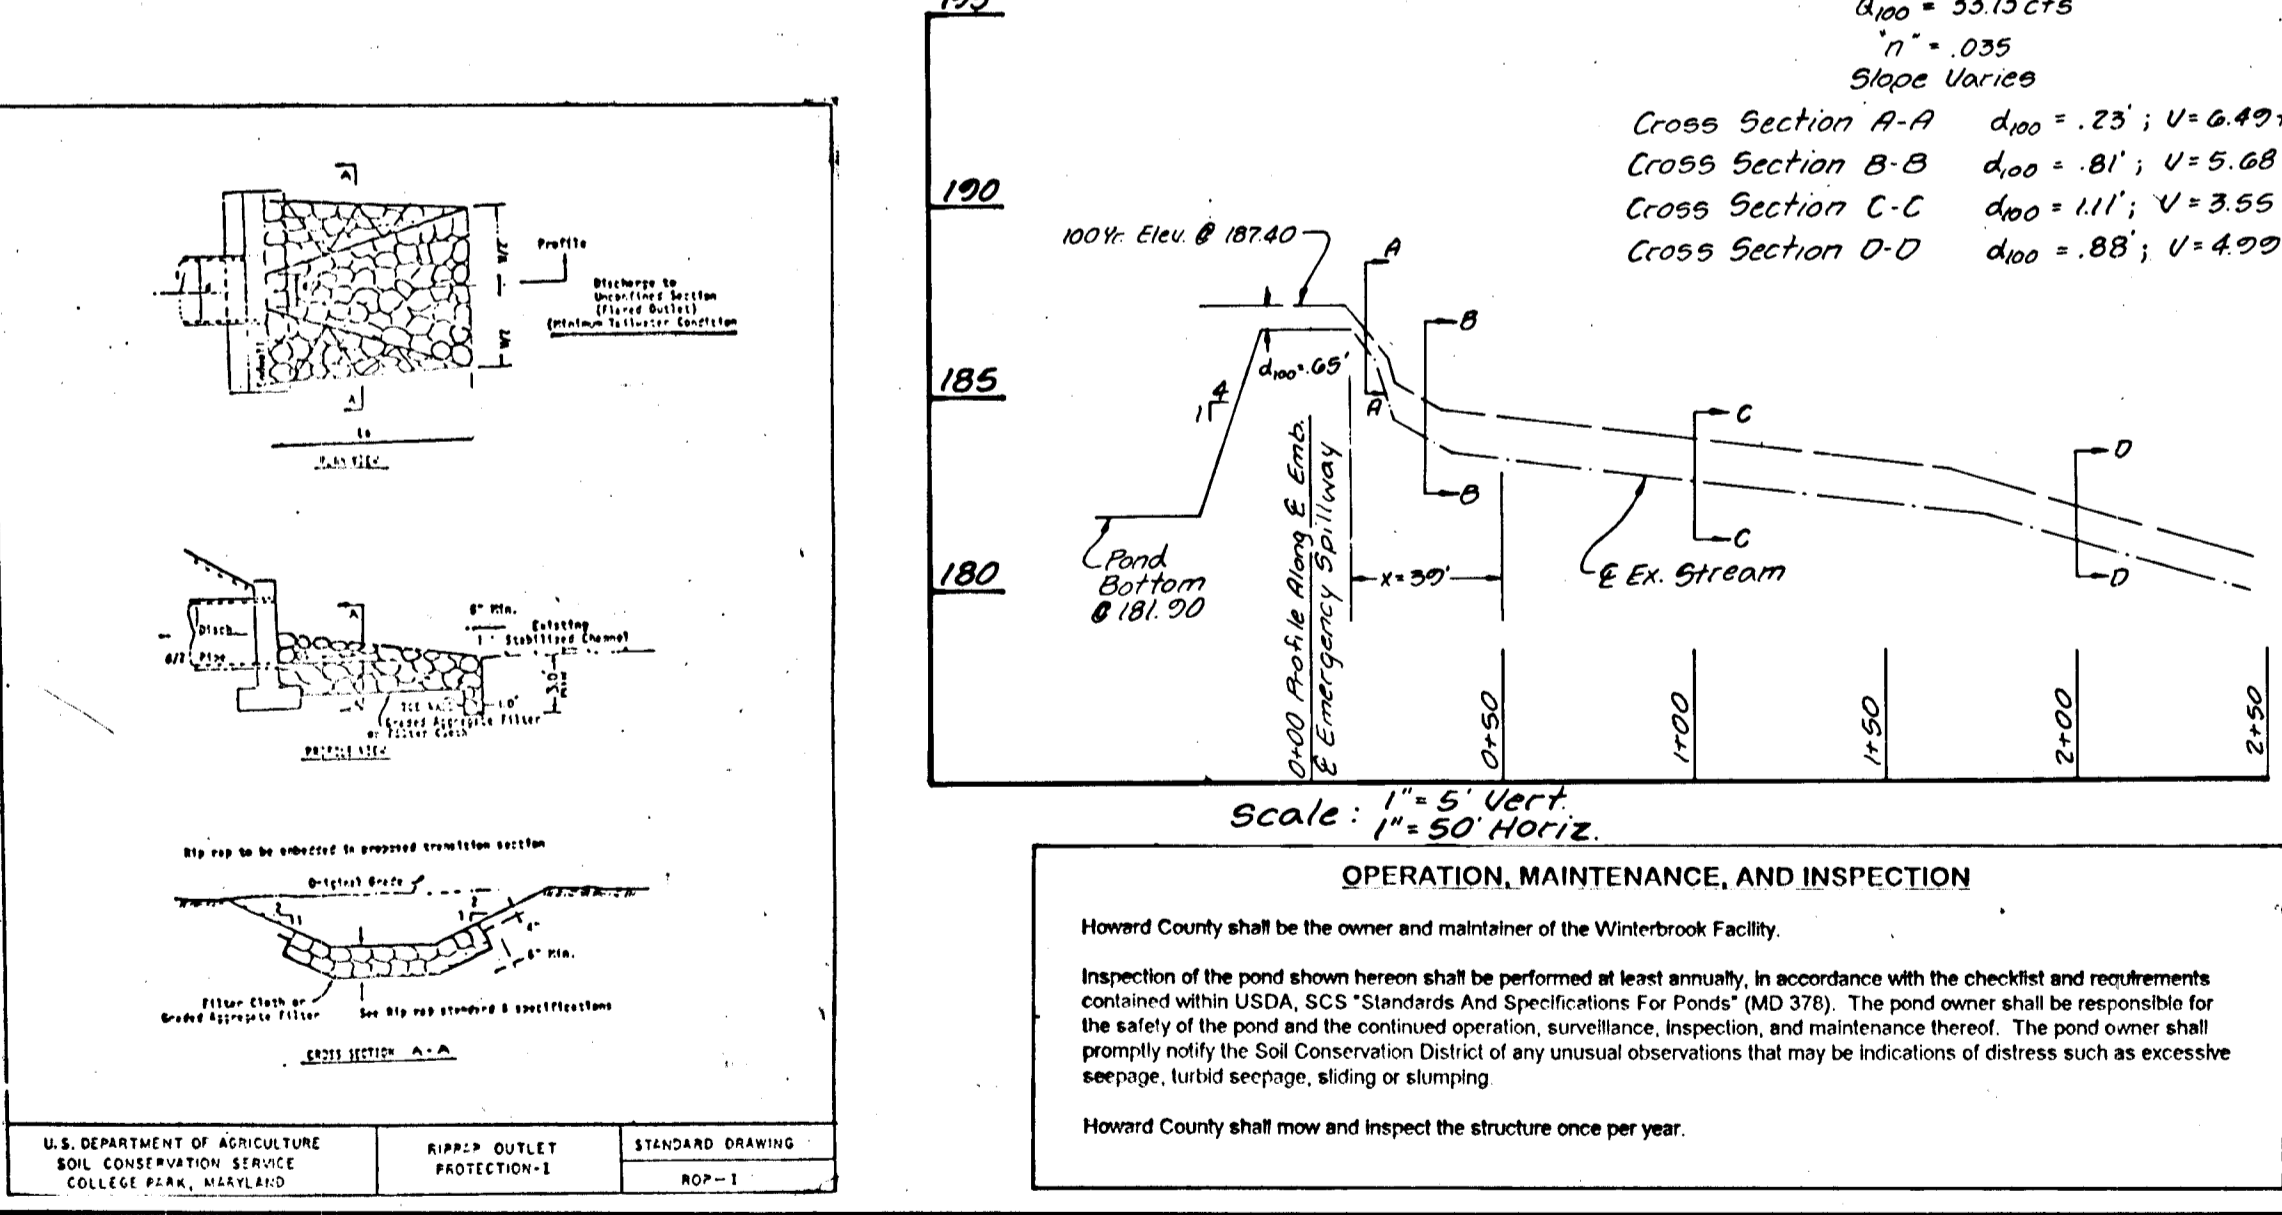 A
Profile
Discharge to
Unconfined Section
(Flared Outlet)
(Minimum Tailwater Condition
A
PLAN VIEW
A
Disch.
Pipe
6" Min.
Existing
Stabilized Channel
3.0'
1.0'
Graded Aggregate Filter
or Filter Cloth
PROFILE VIEW
Rip rap to be embedded in proposed transition section
Original Grade
2
1
2
1
6" Min.
Filter Cloth or
Graded Aggregate Filter
See Rip rap standard & specifications
CROSS SECTION A-A
U.S. DEPARTMENT OF AGRICULTURE
SOIL CONSERVATION SERVICE
COLLEGE PARK, MARYLAND
RIPRAP OUTLET
PROTECTION-I
STANDARD DRAWING
ROP-I
195
190
185
180
Q100 = 33.15 cfs
"n" = .035
Slope Varies
Cross Section A-A d100 = .23'; V = 6.49
Cross Section B-B d100 = .81'; V = 5.68
Cross Section C-C d100 = 1.11'; V = 3.55
Cross Section D-D d100 = .88'; V = 4.99
100 Yr. Elev. @ 187.40
A
A
B
B
C
C
D
D
d100 = .65'
1
4
Pond
Bottom
@ 181.90
0+00 Profile Along ℄ Emb.
℄ Emergency Spillway
x = 39'
℄ Ex. Stream
0+50
1+00
1+50
2+00
2+50
Scale: 1" = 5' Vert.
1" = 50' Horiz.
OPERATION, MAINTENANCE, AND INSPECTION
Howard County shall be the owner and maintainer of the Winterbrook Facility.
Inspection of the pond shown hereon shall be performed at least annually, in accordance with the checklist and requirements
contained within USDA, SCS "Standards And Specifications For Ponds" (MD 378). The pond owner shall be responsible for
the safety of the pond and the continued operation, surveillance, inspection, and maintenance thereof. The pond owner shall
promptly notify the Soil Conservation District of any unusual observations that may be indications of distress such as excessive
seepage, turbid seepage, sliding or slumping.
Howard County shall mow and inspect the structure once per year.